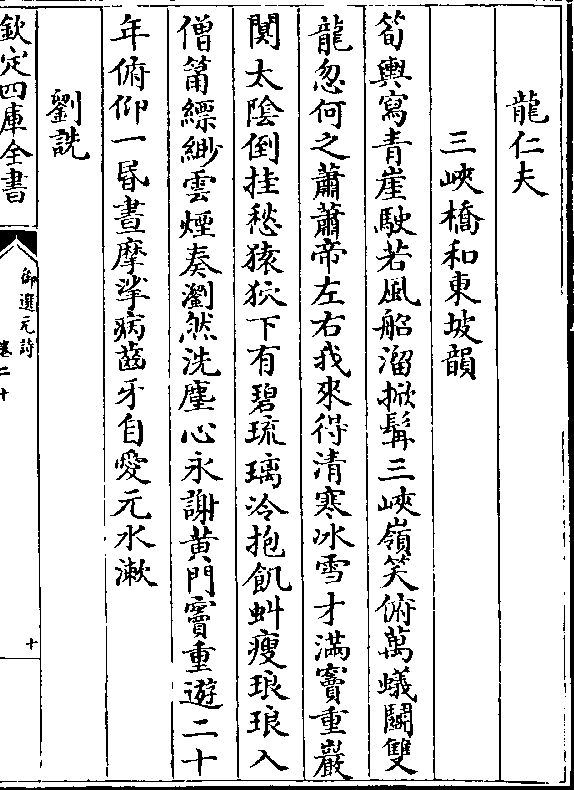 龍仁夫
三峽橋和東坡韻
筍輿寫青崖駛若風船溜掀髯三峽嶺笑俯萬蟻鬬雙
龍忽何之蕭蕭帝左右我來得清寒冰雪才滿竇重巖
閴太陰倒挂愁猿狖下有碧琉璃泠抱飢虯瘦琅琅入
僧筩縹緲雲煙奏瀏然洗塵心永謝黄門竇重遊二十
年俯仰一昬晝摩挲病齒牙自愛元水漱
劉詵
欽定四庫全書
御選元詩
卷二十
十